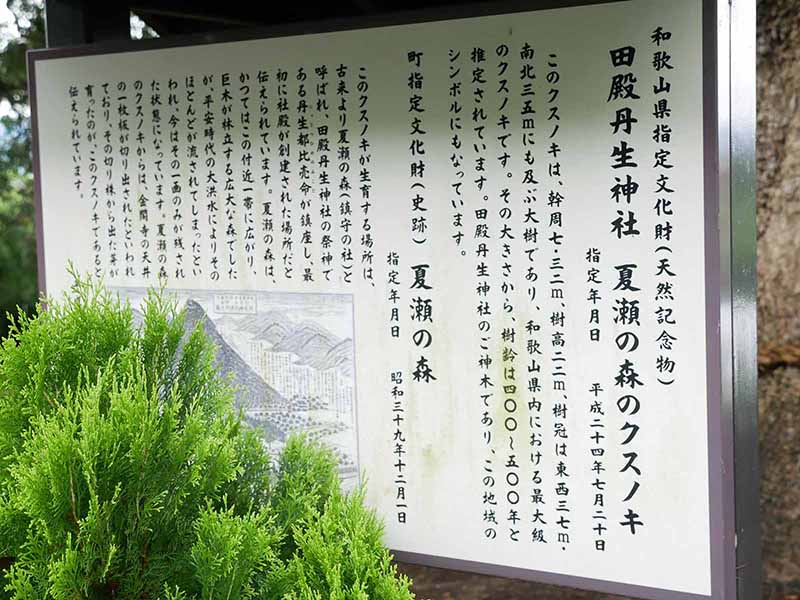 和歌山県指定文化財(天然記念物)
田殿丹生神社 夏瀬の森のクスノキ
指定年月日 平成二十四年七月二十日
このクスノキは、幹周七・三二m、樹高二二m、樹冠は東西三七m・
南北三五mにも及ぶ大樹であり、和歌山県内における最大級
のクスノキです。その大きさから、樹齢は四〇〇～五〇〇年と
推定されています。田殿丹生神社のご神木であり、この地域の
シンボルにもなっています。
町指定文化財(史跡) 夏瀬の森
指定年月日 昭和三十九年十二月一日
このクスノキが生育する場所は、
古来より夏瀬の森(鎮守の社)と
呼ばれ、田殿丹生神社の祭神で
ある丹生都比売命が鎮座し、最
初に社殿が創建された場所だと
伝えられています。夏瀬の森は、
かつてはこの付近一帯に広がり、
巨木が林立する広大な森でした
が、平安時代の大洪水によりその
ほとんどが流されてしまったとい
われ、今はその一画のみが残され
た状態になっています。夏瀬の森
のクスノキからは、金閣寺の天井
の一枚板が切り出されたといわれ
ており、その切り株から出た芽が
育ったのが、このクスノキであると
伝えられています。